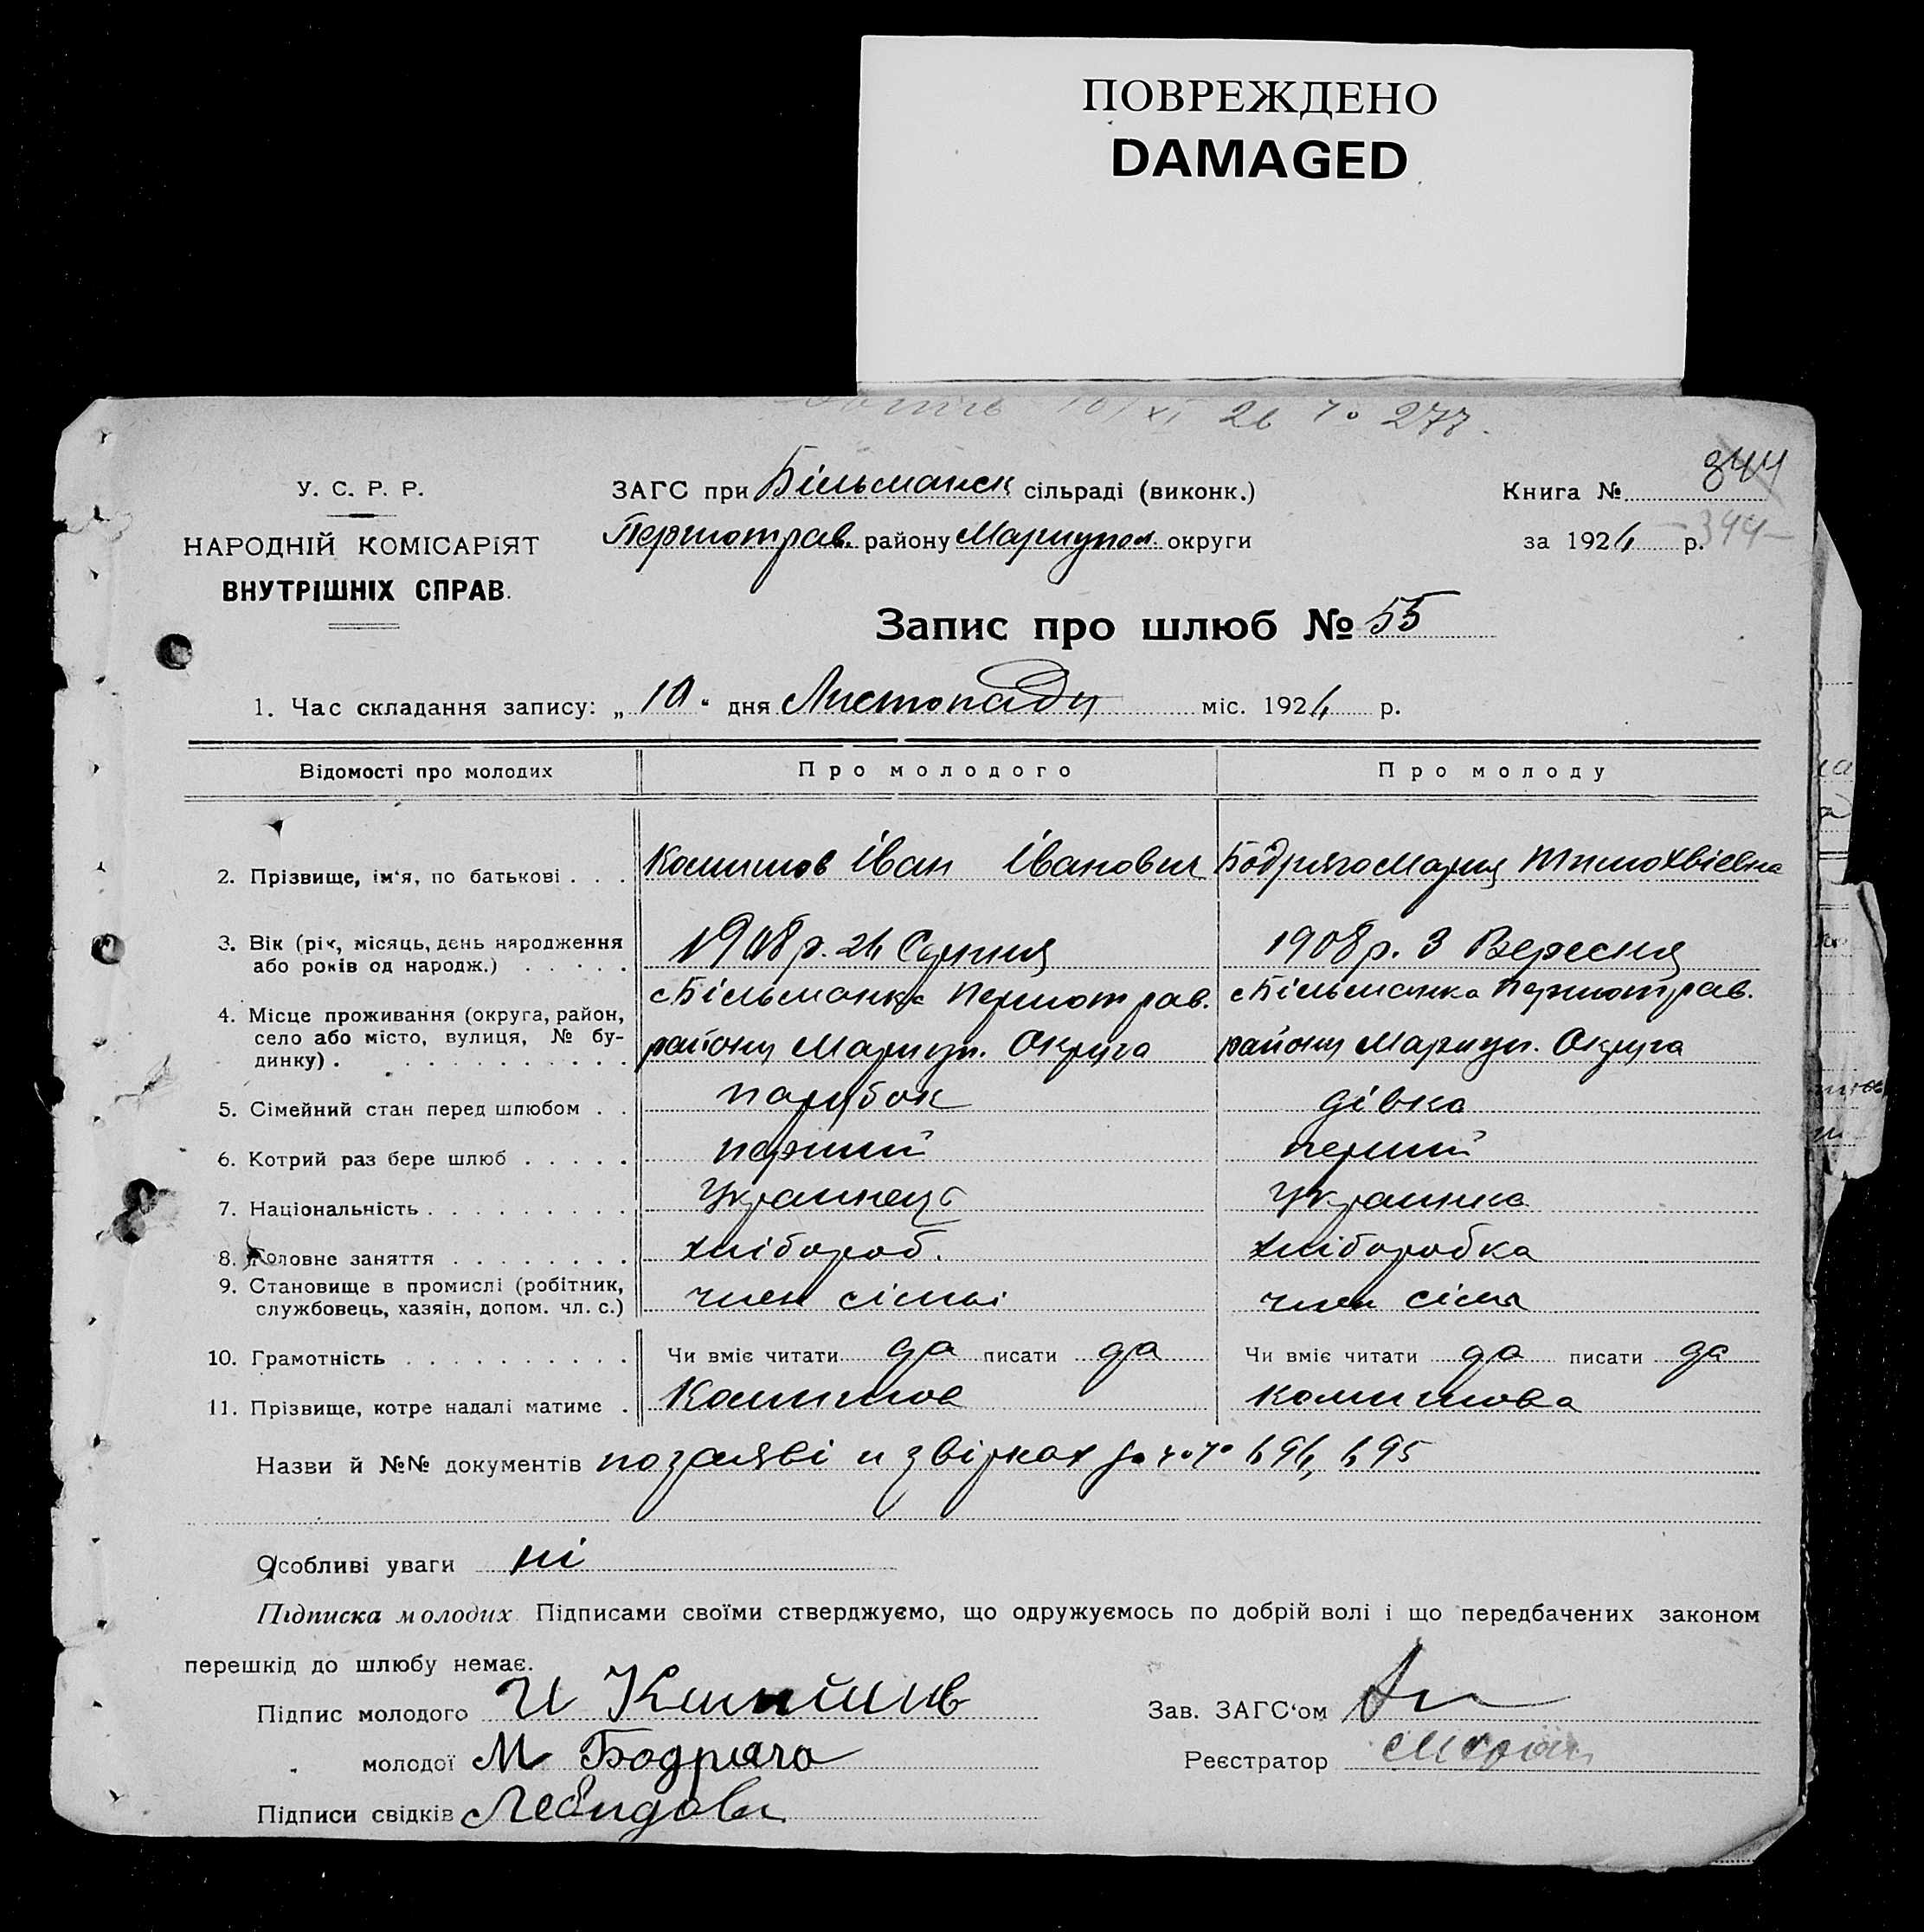 ПОВРЕЖДЕНО
DAMAGED
10/XI 26 277.
У. С. Р. Р.
НАРОДНІЙ КОМІСАРІЯТ
ВНУТРІШНІХ СПРАВ.
ЗАГС при Більманск сільраді (виконк.)
Першотрав. району Мариупол. округи
Книга № 344
за 1926 р. 344
Запис про шлюб № 55
1. Час складання запису: „10" дня Листопаду міс. 1926 р.
Відомості про молодих Про молодого Про молоду
2. Прізвище, ім'я, по батькові . . . Комишов Іван Іванович Бодряго Мария Тимохвіевна
3. Вік (рік, місяць, день народження
або років од народж.) . . . . . 1908 р. 26 Серпня 1908 р. 3 Вересня
4. Місце проживання (округа, район,
село або місто, вулиця, № бу-
динку) . . . . . . . . . . .
с Більманка Першотрав. с Більманка Першотрав.
району Мариуп. Округа району Мариуп. Округа
5. Сімейний стан перед шлюбом . . парубок дівка
6. Котрий раз бере шлюб . . . . . перший перший
7. Національність . . . . . . . . . Украинець Украинка
8. Головне заняття . . . . . . . . хлібороб. хліборобка
9. Становище в промислі (робітник,
службовець, хазяін, допом. чл. с.) член сімьі член сімьі
10. Грамотність . . . . . . . . . . . Чи вміє читати да писати да Чи вміє читати да писати да
11. Прізвище, котре надалі матиме . Комишов Комишова
Назви й №№ документів по заяві и звірках 694, 695
Особливі уваги ні
Підписка молодих. Підписами своїми стверджуємо, що одружуємось по добрій волі і що передбачених законом
перешкід до шлюбу немає.
Підпис молодого И Комишов Зав. ЗАГС'ом
молодої М Бодряго Реєстратор
Підписи свідків